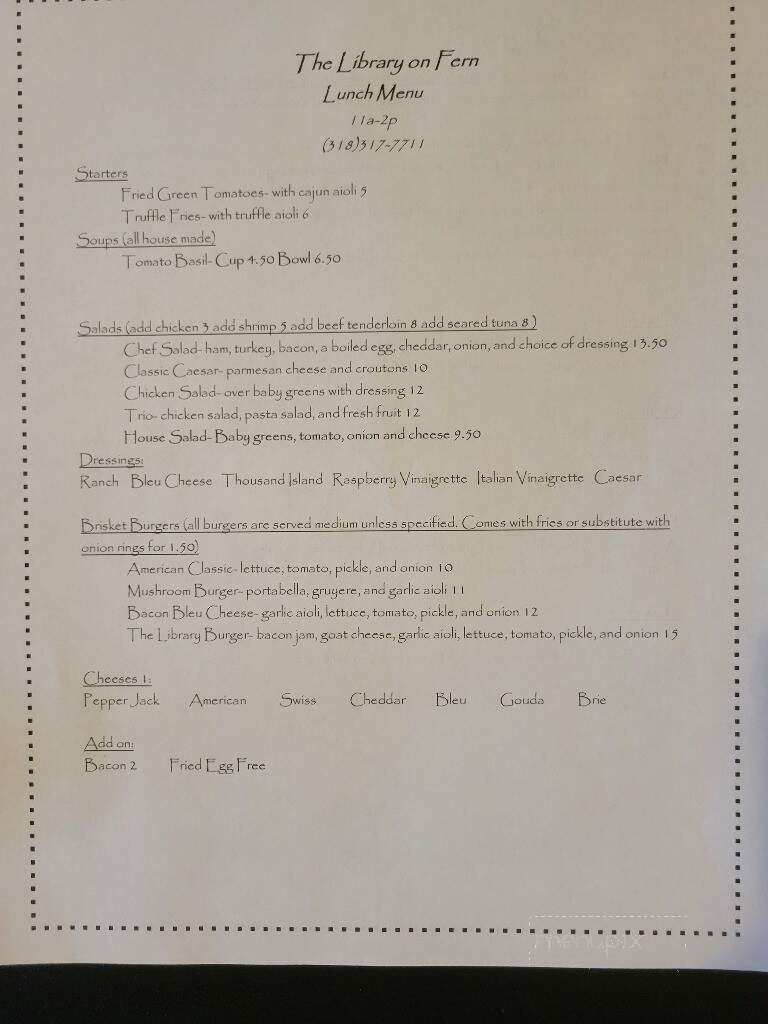 The Library on Fern
Lunch Menu
11a-2p
(318)317-7711
Starters
Fried Green Tomatoes- with cajun aioli 5
Truffle Fries- with truffle aioli 6
Soups (all house made)
Tomato Basil- Cup 4.50 Bowl 6.50
Salads (add chicken 3 add shrimp 5 add beef tenderloin 8 add seared tuna 8 )
Chef Salad- ham, turkey, bacon, a boiled egg, cheddar, onion, and choice of dressing 13.50
Classic Caesar- parmesan cheese and croutons 10
Chicken Salad- over baby greens with dressing 12
Trio- chicken salad, pasta salad, and fresh fruit 12
House Salad- Baby greens, tomato, onion and cheese 9.50
Dressings:
Ranch Bleu Cheese Thousand Island Raspberry Vinaigrette Italian Vinaigrette Caesar
Brisket Burgers (all burgers are served medium unless specified. Comes with fries or substitute with
onion rings for 1.50)
American Classic- lettuce, tomato, pickle, and onion 10
Mushroom Burger- portabella, gruyere, and garlic aioli 11
Bacon Bleu Cheese- garlic aioli, lettuce, tomato, pickle, and onion 12
The Library Burger- bacon jam, goat cheese, garlic aioli, lettuce, tomato, pickle, and onion 15
Cheeses 1:
Pepper Jack American Swiss Cheddar Bleu Gouda Brie
Add on:
Bacon 2 Fried Egg Free
menupix